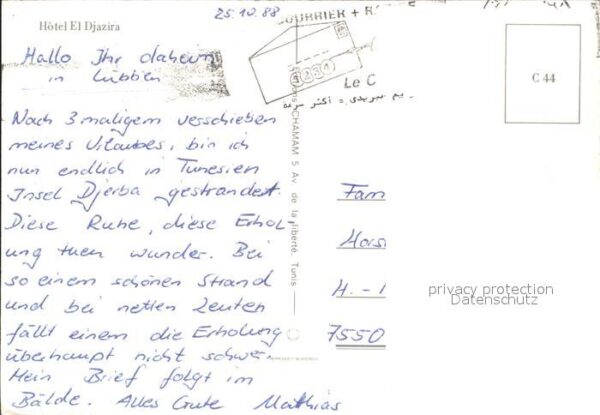 25.10.88
Hôtel El Djazira
COURRIER + R
Hallo Ihr daheim
in Lübben
Le C
C 44
Nach 3 maligem verschieben
meines Urlaubes, bin ich
nun endlich in Tunesien
Insel Djerba gestrandet.
Diese Ruhe, diese Erhol-
ung tuen wunder. Bei
so einem schönen Strand
und bei netten Leuten
fällt einem die Erholung
überhaupt nicht schwer.
Mein Brief folgt im
Bälde. Alles Gute Matthias
CHAMAM 5 Av. de la liberté. Tunis
Fam
Hors
H. - 1
7550
privacy protection
Datenschutz